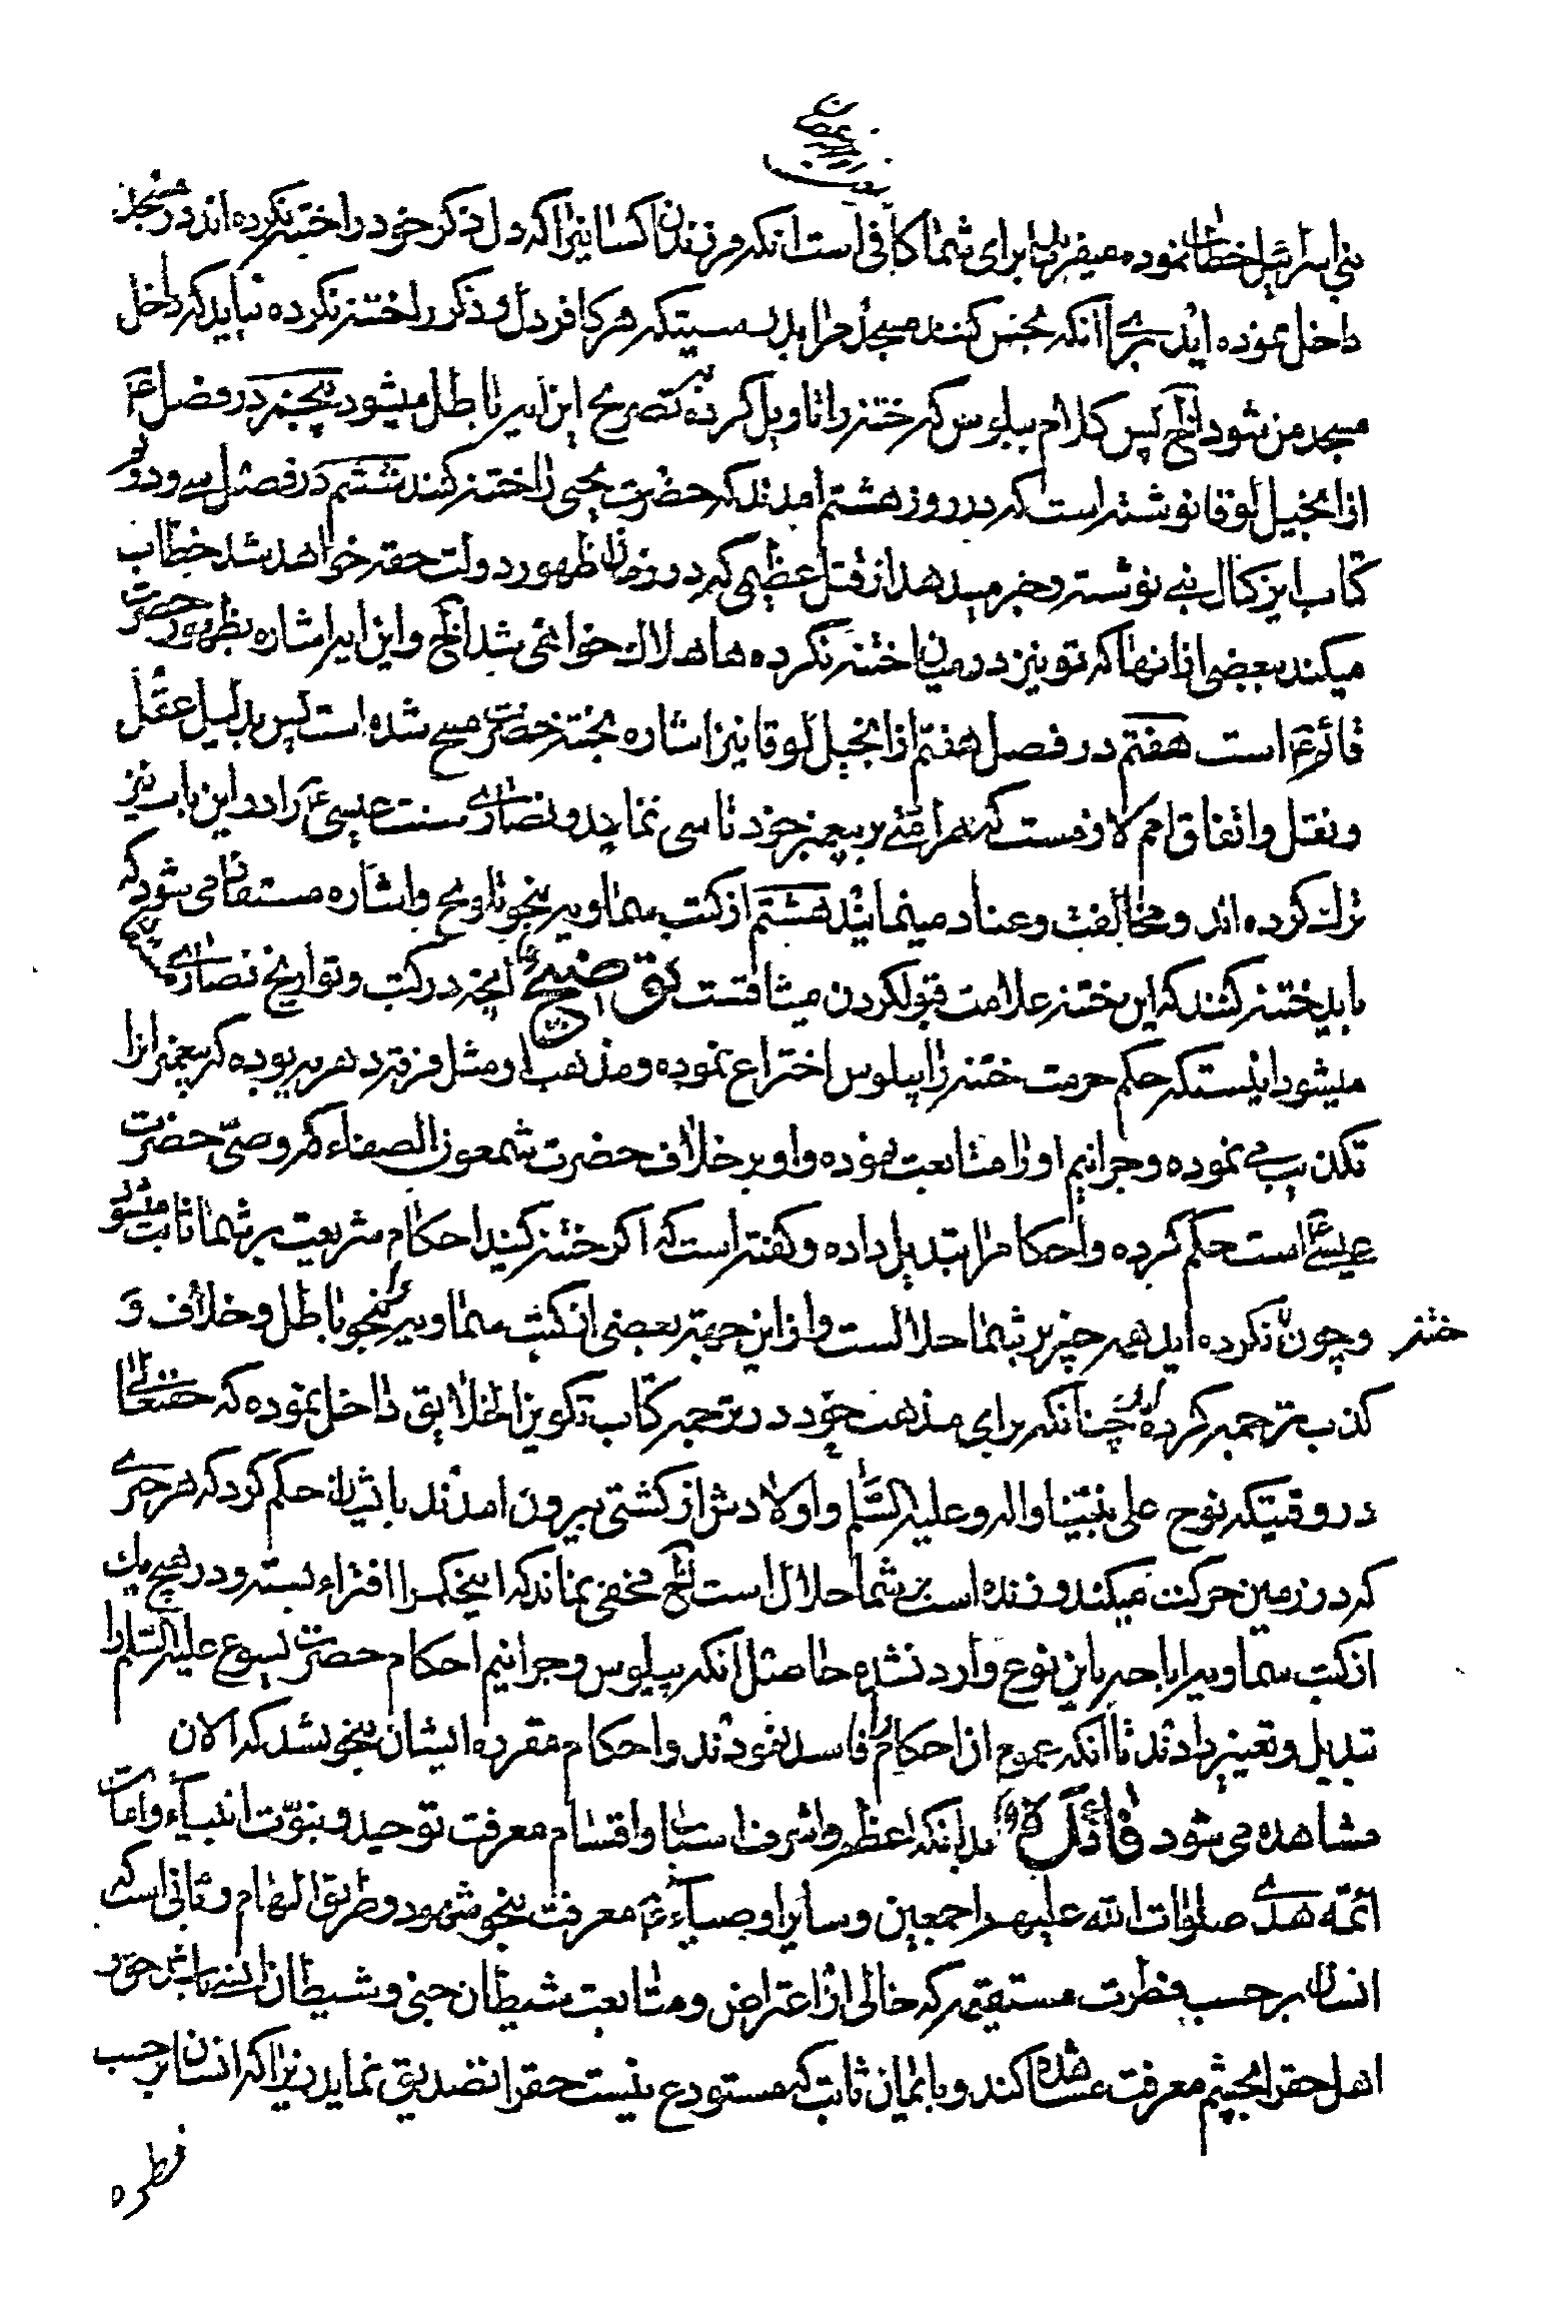 بنی اسرائیل خطاب نموده میفرماید برای شما کافی است انکه فرزندان کسانیرا که دل و ذکر خود را ختنه نکرده اند در مسجد
داخل نموده اید برای انکه نجس کنند مسجد مرا بدرستیکه هر کافر دل و ذکر را ختنه نکرده نباید که داخل
مسجد من شود الخ پس کلام پیلوس که ختنه را تاویل کرده بتصریح این ایه باطل میشود پنجم در فصل
از انجیل لوقا نوشته است که در روز هشتم امدند که حضرت یحیی را ختنه کنند ششم در فصل سی و دو
کتاب ایزکال نبی نوشته و خبر میدهد از قتل عظیمی که در زمان ظهور دولت حقه خواهد شد خطاب
میکند ببعضی از انها که تو نیز در میان ختنه نکرده ها هلاک خواهی شد الخ و این ایه اشاره بظهور حضرت
قائم ع است هفتم در فصل هفتم از انجیل لوقا نیز اشاره بختنه حضرت مسیح شده است پس بدلیل عقل
و نقل و اتفاق امم لازمست که هر امتی بر پیغمبر خود تاسی نماید و نصاری سنت عیسی ع را در این باب نیز
ترک کرده اند و مخالفت و عناد مینمایند هشتم از کتب سماویه بنحو تلویح و اشاره مستفاد می شود که
باید ختنه کنند که این ختنه علامت قبول کردن میثاقست توضیح انچه در کتب و تواریخ نصاری
میشود اینستکه حکم حرمت ختنه را پیلوس اختراع نموده و مذهب او مثل فرقه دهریه بوده که پیغمبرانرا
تکذیب می نموده و جرانیم او را متابعت نموده و او بر خلاف حضرت شمعون الصفاء که وصی حضرت
عیسی ع است حکم کرده و احکام را تبدیل داده و گفته است که اگر ختنه کنید احکام شریعت بر شما ثابت میشود
و چون ختنه نکرده اید همه چیز بر شما حلالست و از این جهة بعضی از کتب سماویه را بنحو باطل و خلاف و
کذب ترجمه کرده چنانکه برای مذهب خود در ترجمه کتاب تکوین الخلایق داخل نموده که حقتعالی
در وقتیکه نوح علی نبینا و اله و علیه السلم و اولادش از کشتی بیرون امدند بایشان حکم کرد که هر چیزی
که در زمین حرکت میکند و زنده است بر شما حلال است الخ مخفی نماند که اینحکم را افتراء بسته و در هیچ یک
از کتب سماویه اباحه باین نوع وارد نشده حاصل انکه پیلوس و جرانیم احکام حضرت یسوع علیه السلم را
تبدیل و تغییر دادند تا انکه عموم از احکام را فاسد نمودند و احکام مقرره ایشان بنحوی شد که الان
مشاهده می شود فائدة بدانکه اعظم و اشرف اسباب و اقسام معرفت توحید و نبوت انبیاء و امامت
ائمه هدی صلوات الله علیهم اجمعین و سایر اوصیاء ع معرفت بنحو شهود و طریق الهام و ثانی است که
انسان بر حسب فطرت مستقیمه که خالی از اعتراض و متابعت شیطان جنی و شیطان انسی باشد حق و
اهل حق را بچشم معرفت مشاهده کند و بایمان ثابت که مستودع نیست حق را تصدیق نماید زیرا که انسان بر حسب
فطره